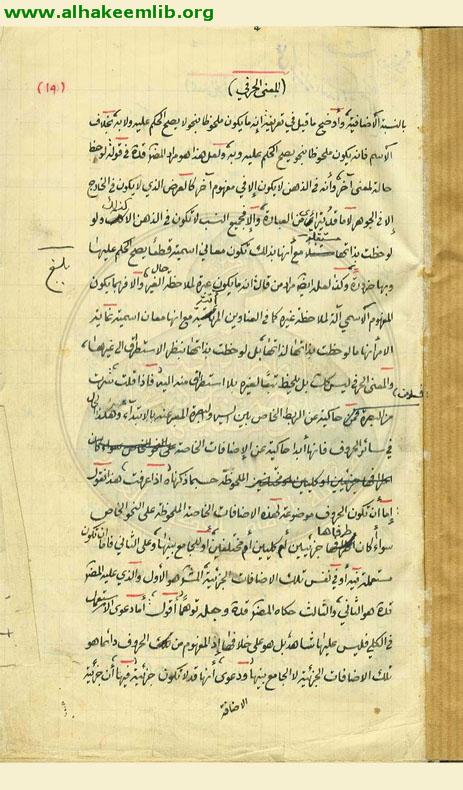 www.alhakeemlib.org
(١٩)
(المعنى الحرفي)
بالنسبة الاضافية وأوضح ما قيل في تعريفه انه ما يكون ملحوظا بنحو لا يصح الحكم عليه ولا به بخلاف
الاسم فانه يكون ملحوظا بنحو يصح الحكم عليه وبه ولعل هذا هو مراد المفصل قده في قوله لوحظ
حالة لمعنى آخر وأنه في الذهن لا يكون إلا في مفهوم آخر كالعرض الذي لا يكون في الخارج
إلا في الجوهر العبارة وإلا فجميع النسب لا تكون في الذهن الا كذلك ولو
لوحظت بذاتها مستقلة مع أنها بذلك تكون معاني اسمية قطعا يصح الحكم عليها
وبها ضرورة وكذا لعله ايضا مراد من قال انه ما يكون حال
المفهوم الاسمي آلة لملاحظة غيره كما في العناوين مع انها معان اسمية
الامر أنها ما لوحظت بذاتها لذاتها بل لوحظت بذاتها بنظر الاستطراق الى غيرها
والمعنى الحرفي ليس كذلك بل يلحظ تبعا لغيره بلا استطراق منه اليه فإذا قلت سرت
بلغ
من البصرة حاكية عن الربط الخاص بين السير والبصرة المعبر عنه بالابتداء وهكذا
في سائر الحروف فانها أبدا حاكية عن الإضافات الخاصة
الملحوظة حسبما ذكرناه اذا عرفت هذا فنقول
إما أن تكون الحروف موضوعة لهذه الاضافات الخاصة الملحوظة على النحو الخاص
سواء كان طرفاها جزئيين أم كليين أم مختلفين أو للجامع بينها وعلى الثاني فاما ان تكون
مستعملة فيه أو في نفس تلك الاضافات الجزئية المشهور هو الأول والذي عليه المفصل
قده هو الثاني والثالث حكاه المفصل قده وجعله توهما أقول أما دعوى الاستعمال
في الكلي فليس عليها شاهد بل هو على خلافها إذ المفهوم من تلك الحروف دائما هو
تلك الاضافات الجزئية لا الجامع بينها ودعوى أنها قد لا تكون جزئية فيها أن جزئية
الاضافة